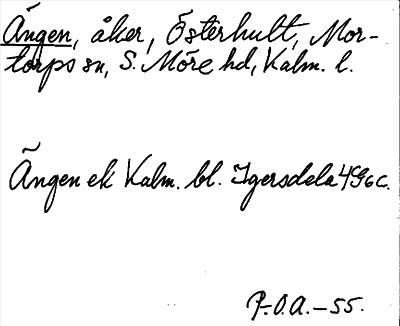 Ängen, åker, Österhult, Mor-
torps sn, S. Möre hd, Kalm. l.
Ängen ek Kalm. bl. Igersdela 4G6c.
P.O.A.-55.